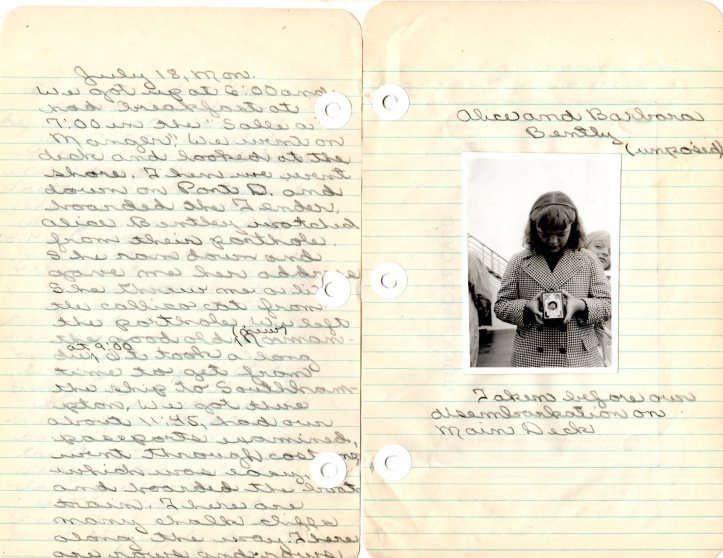 July 18, Mon.
We got up at 6:00 and
had breakfast at
7:00 in the "Salle a
Manger". We went on
deck and looked at the
shore. Then we went
down on Port D. and
boarded the Tender.
Alice Bentley watched
from their porthole.
She ran down and
gave me her address
She threw me a
the calico cat from
the porthole. We left
the good old (new) Norman-
die, at 9:00. It took a long
time to get from
the ship to Southham-
pton. We got there
about 11:45, had our
passports examined,
went through customs
which was easy
and boarded the boat
train. There are
many chalk cliffs
along the way. There
are rows and rows
Alice and Barbara
Bently
(unposed)
Taken before our
disembarkation on
Main Deck